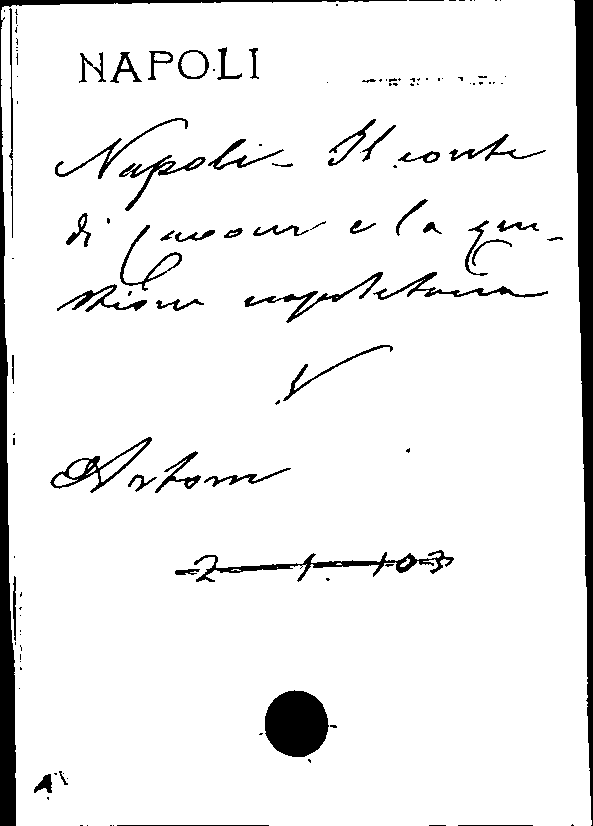 NAPOLI
Napoli - Il conte
di Cavour e la que-
stione napoletana
V
Artom
2 1 103
A